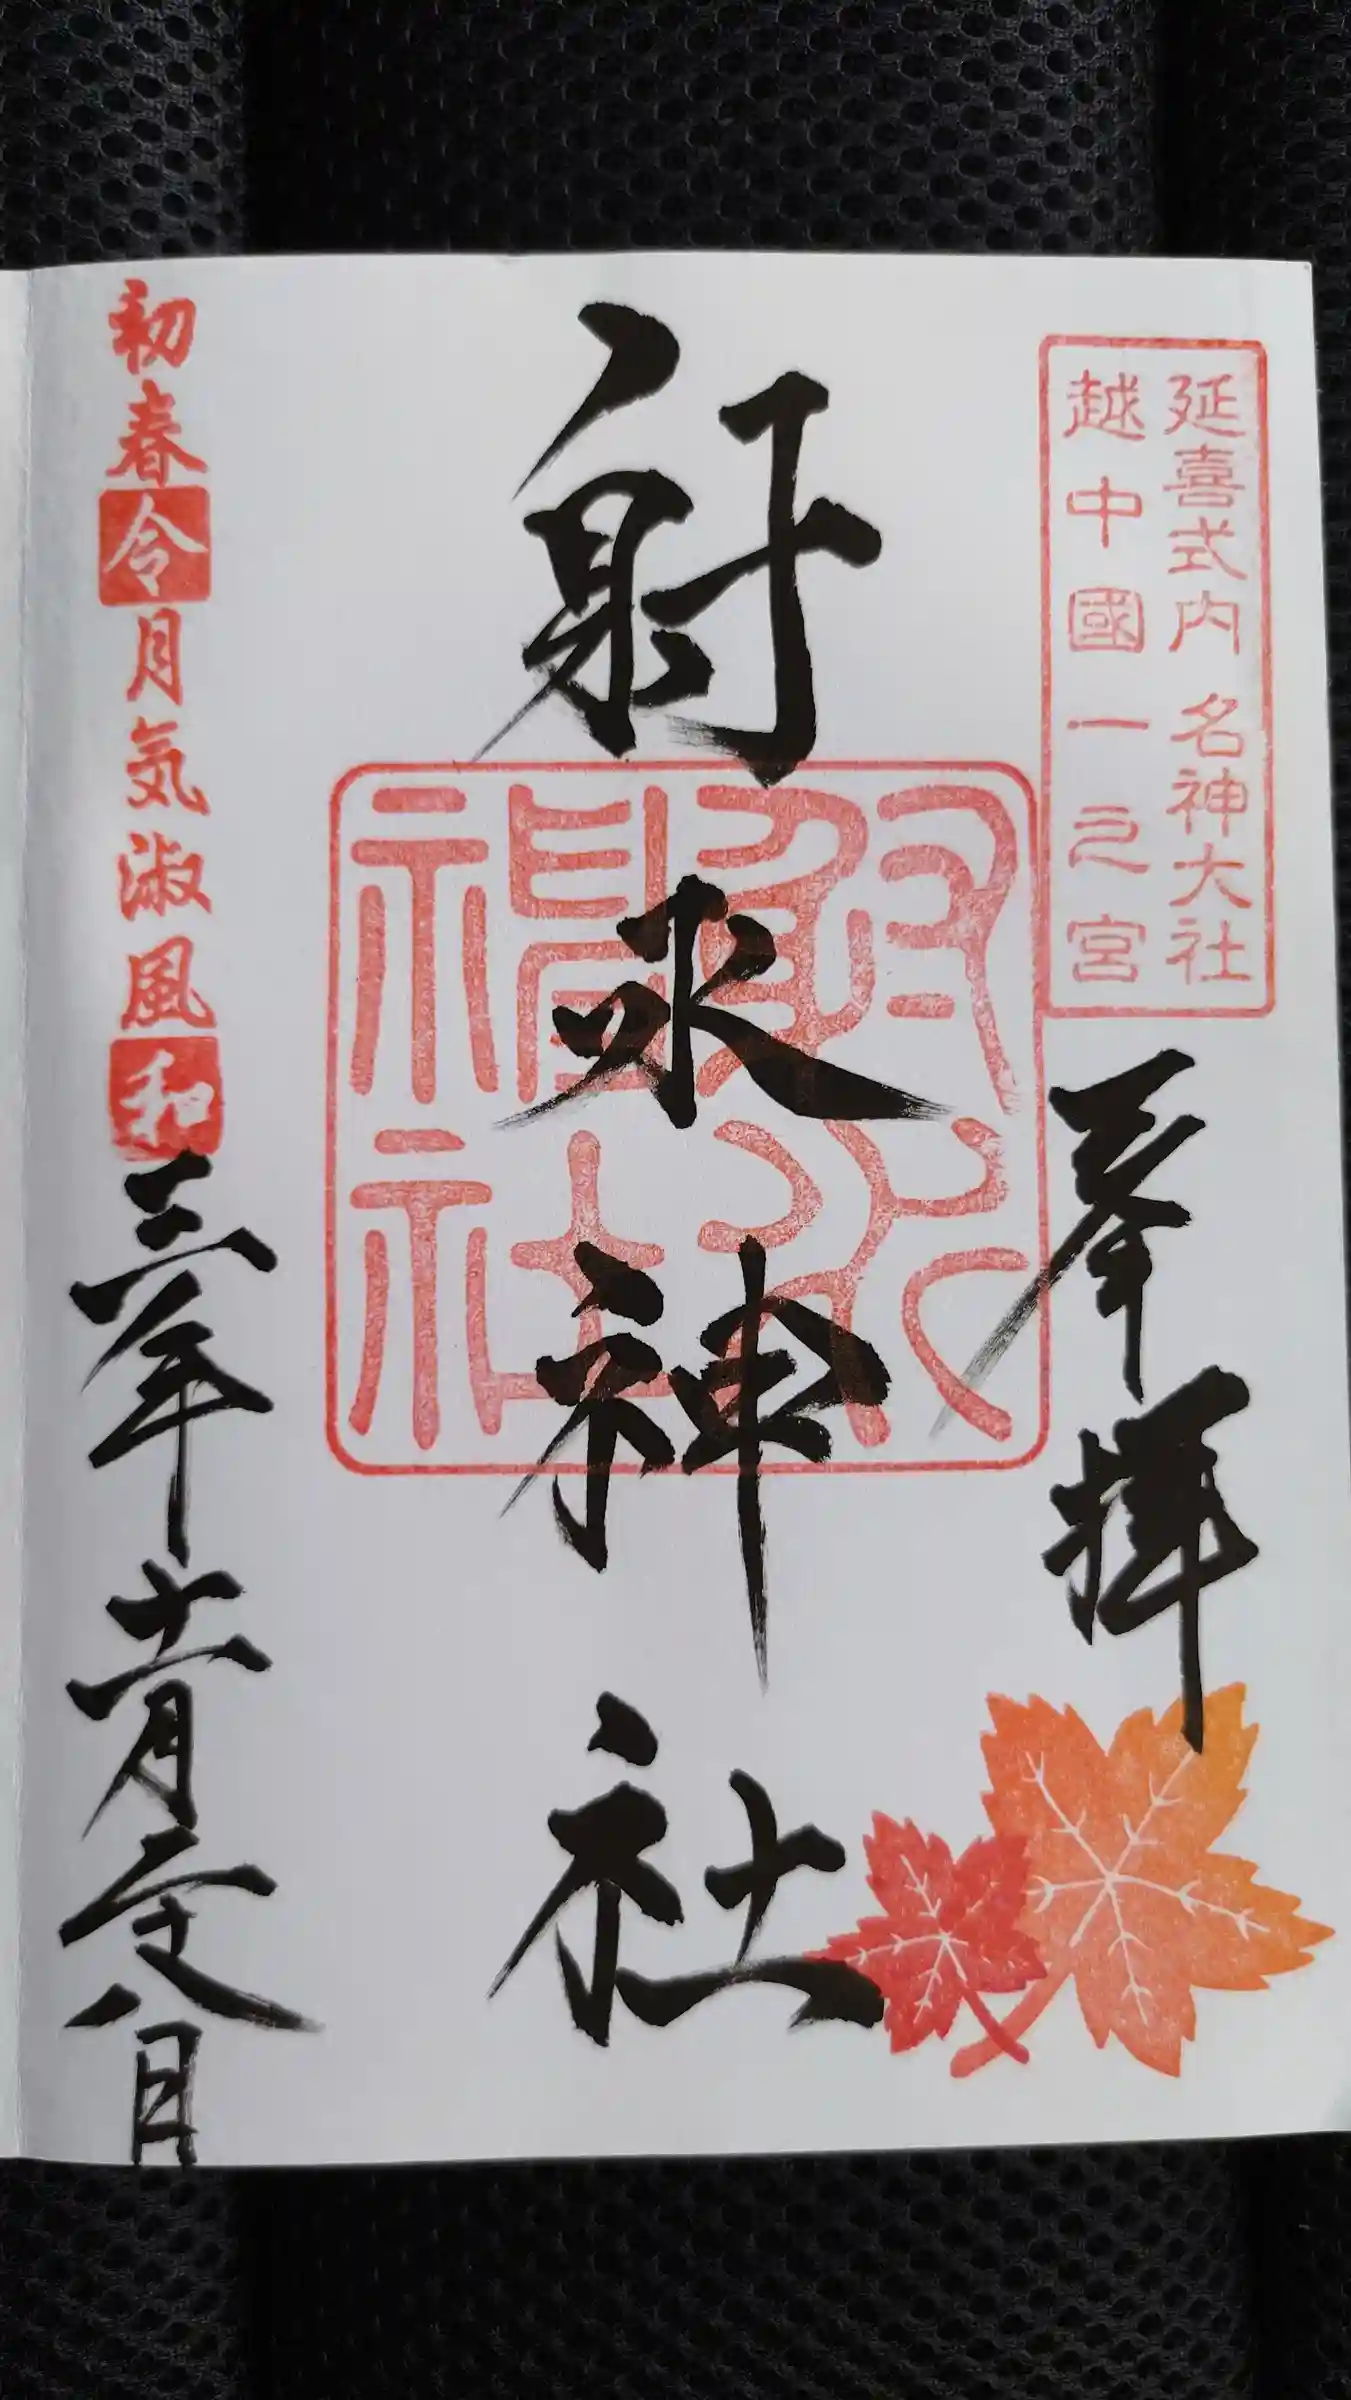 延喜式内 名神大社
越中國一之宮
奉拝
射水神社
射水
神社
初春令月気淑風和三年十一月二十八日